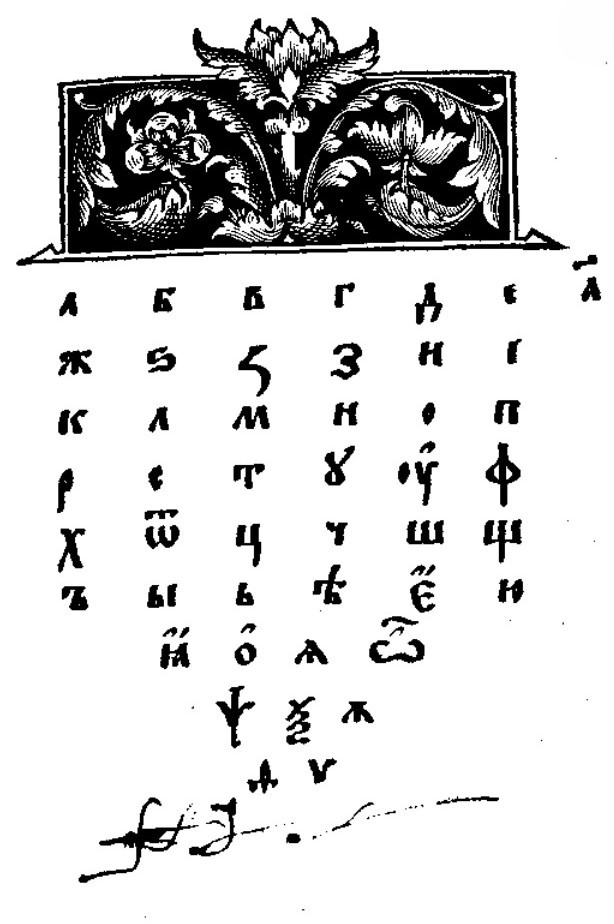 а б в г д є
ж ѕ ꙁ з и і
к л м н о п
р с т ꙋ оу҆ ф
х ѿ ц ч ш щ
ъ ы ь ѣ є҆́ ю
ꙗ҆́ о҆ ѧ ѽ
ѱ ѯ ѫ
ѳ ѵ